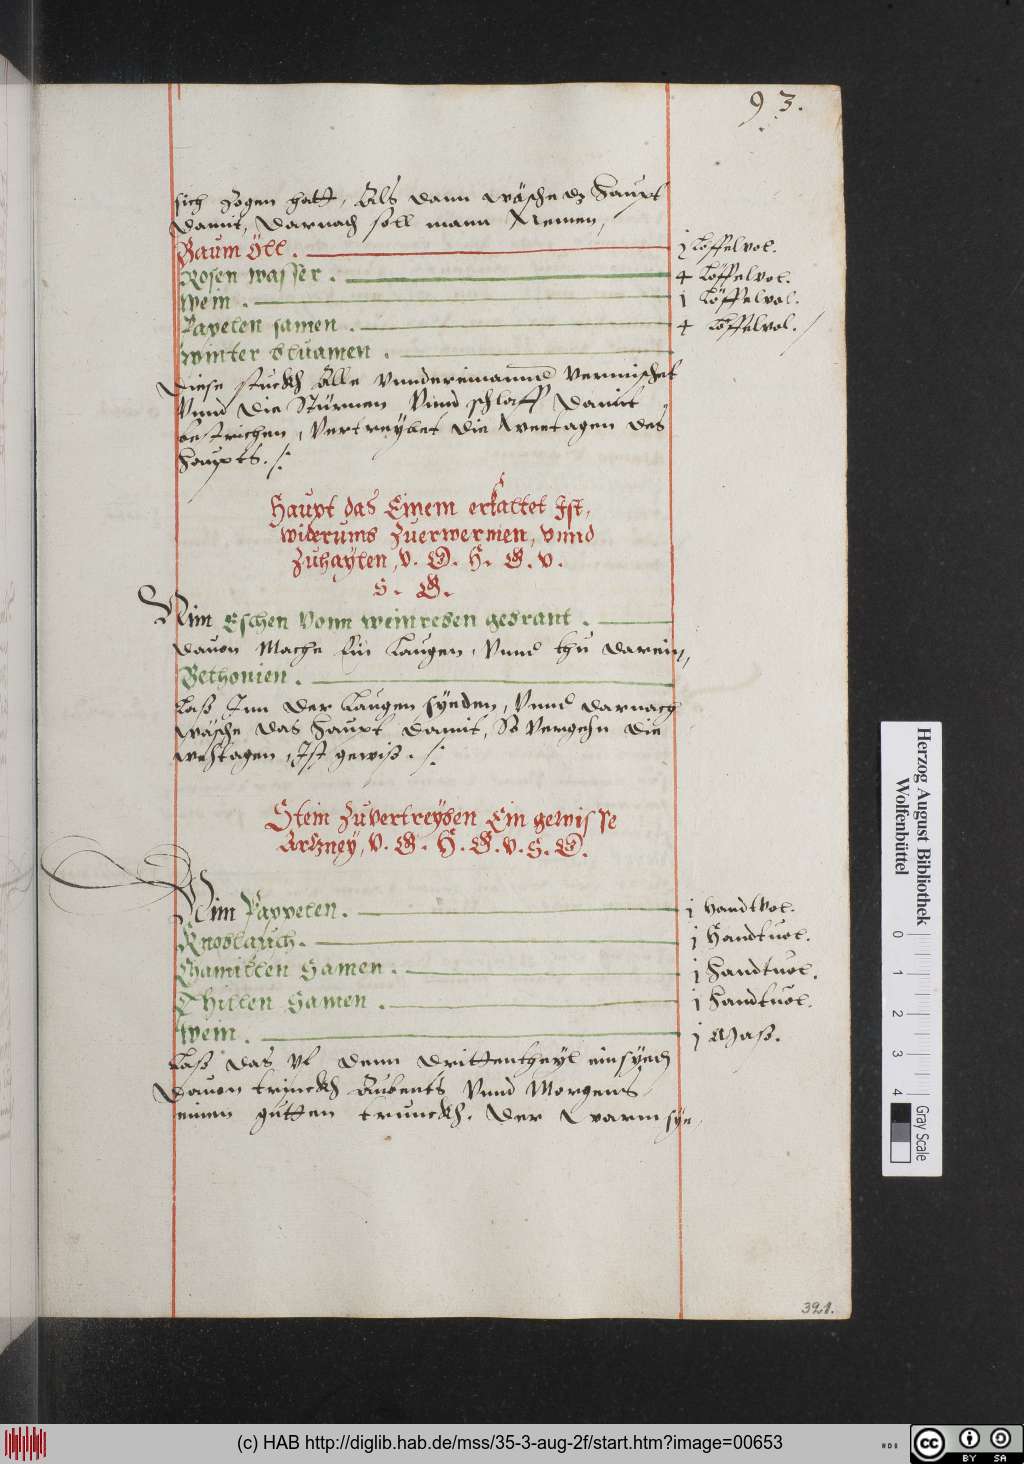 93.
sich zogen hatt, Als dann wäsche dz Haupt
damit, Darnach soll mann Nemen,
Baum Öll. j Löffelvol.
Rosen wasser. 4 Löffelvol.
Wein. j Löffelvol.
Papelen samen. 4 Löffelvol. /
Winter bluamen.
Diese stuckh Alle vnndereinannd vermischet
Vnnd die Stürnen Vnnd schlaff damit
bestrichen, Vertreybet die Weetagen des
Haupts. /:
Haupt das Einem erkaltet Ist,
widerumb Zuerwermen, vnnd
Zuhaylen, v. G. H. G. v.
S. G.
Nim Eschen Vonn weinreben gebrant.
dauon Mache Ein Laugen, Vnnd thu darein,
Bethonien.
Laß Inn der Laugen syeden, Vnnd darnach
wäsche das Haupt damit, So Vergehn die
wehtagen, Ist gewiß. /:
Stein Zuvertreyben Ein gewisse
Artzney, V. G. H. G. v. S. G.
Nim Pappelen. j Handtvol.
Knoblauch. j Handtuol.
Chamillen Samen. j Handtuol.
Thillen Samen. j Handtuol.
Wein. j Maß.
Laß das vf denn drittentheyl einsyedn
dauon trinckh Aubents Vnnd Morgens
einen gutten trunckh. Der Warm sye,
321.
Herzog August Bibliothek
Wolfenbüttel
0 1 2 3 4
Gray Scale
(c) HAB http://diglib.hab.de/mss/35-3-aug-2f/start.htm?image=00653
cc BY SA